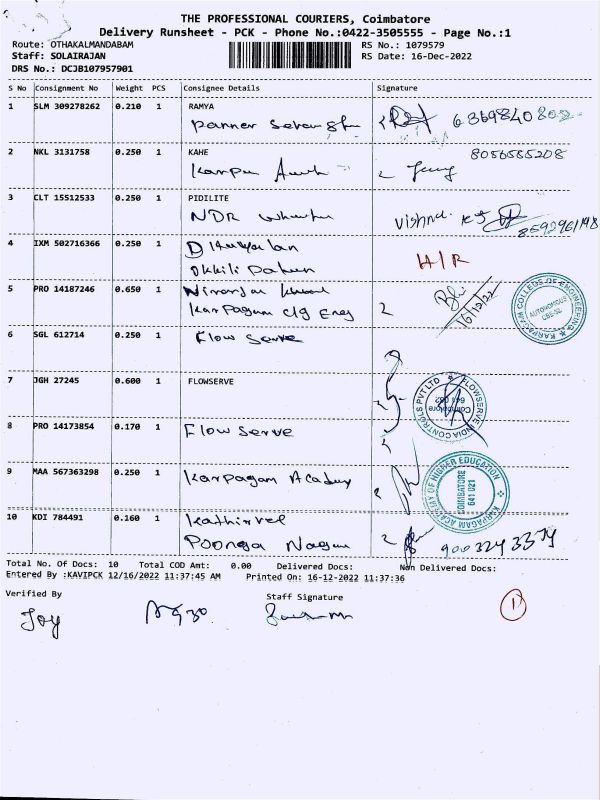 THE PROFESSIONAL COURIERS, Coimbatore
Delivery Runsheet - PCK - Phone No.:0422-3505555 - Page No.:1
Route: OTHAKALMANDABAM
RS No.: 1079579
Staff: SOLAIRAJAN
RS Date: 16-Dec-2022
DRS No.: DCJB107957901
S No Consignment No Weight PCS Consignee Details Signature
1 SLM 309278262 0.210 1 RAMYA
2 NKL 3131758 0.250 1 KAHE
8056585208
3 CLT 15512533 0.250 1 PIDILITE
NDR
Vishnu
4 IXM 502716366 0.250 1
H/R
5 PRO 14187246 0.650 1
Karpagam clg Eng
16/12/22
KARPAGAM COLLEGE OF ENGINEERING
AUTONOMOUS
6 SGL 612714 0.250 1 Flow Serve
7 JGH 27245 0.600 1 FLOWSERVE
FLOWSERVE INDIA CONTROLS PVT LTD
Coimbatore
8 PRO 14173854 0.170 1 Flow Serve
9 MAA 567363298 0.250 1 Karpagam Academy
KARPAGAM ACADEMY OF HIGHER EDUCATION
COIMBATORE
641 021
10 KDI 784491 0.160 1 Kathirvel
Poonga Nagar
Total No. Of Docs: 10 Total COD Amt: 0.00 Delivered Docs: Non Delivered Docs:
Entered By :KAVIPCK 12/16/2022 11:37:45 AM Printed On: 16-12-2022 11:37:36
Verified By
Staff Signature
Joy
1